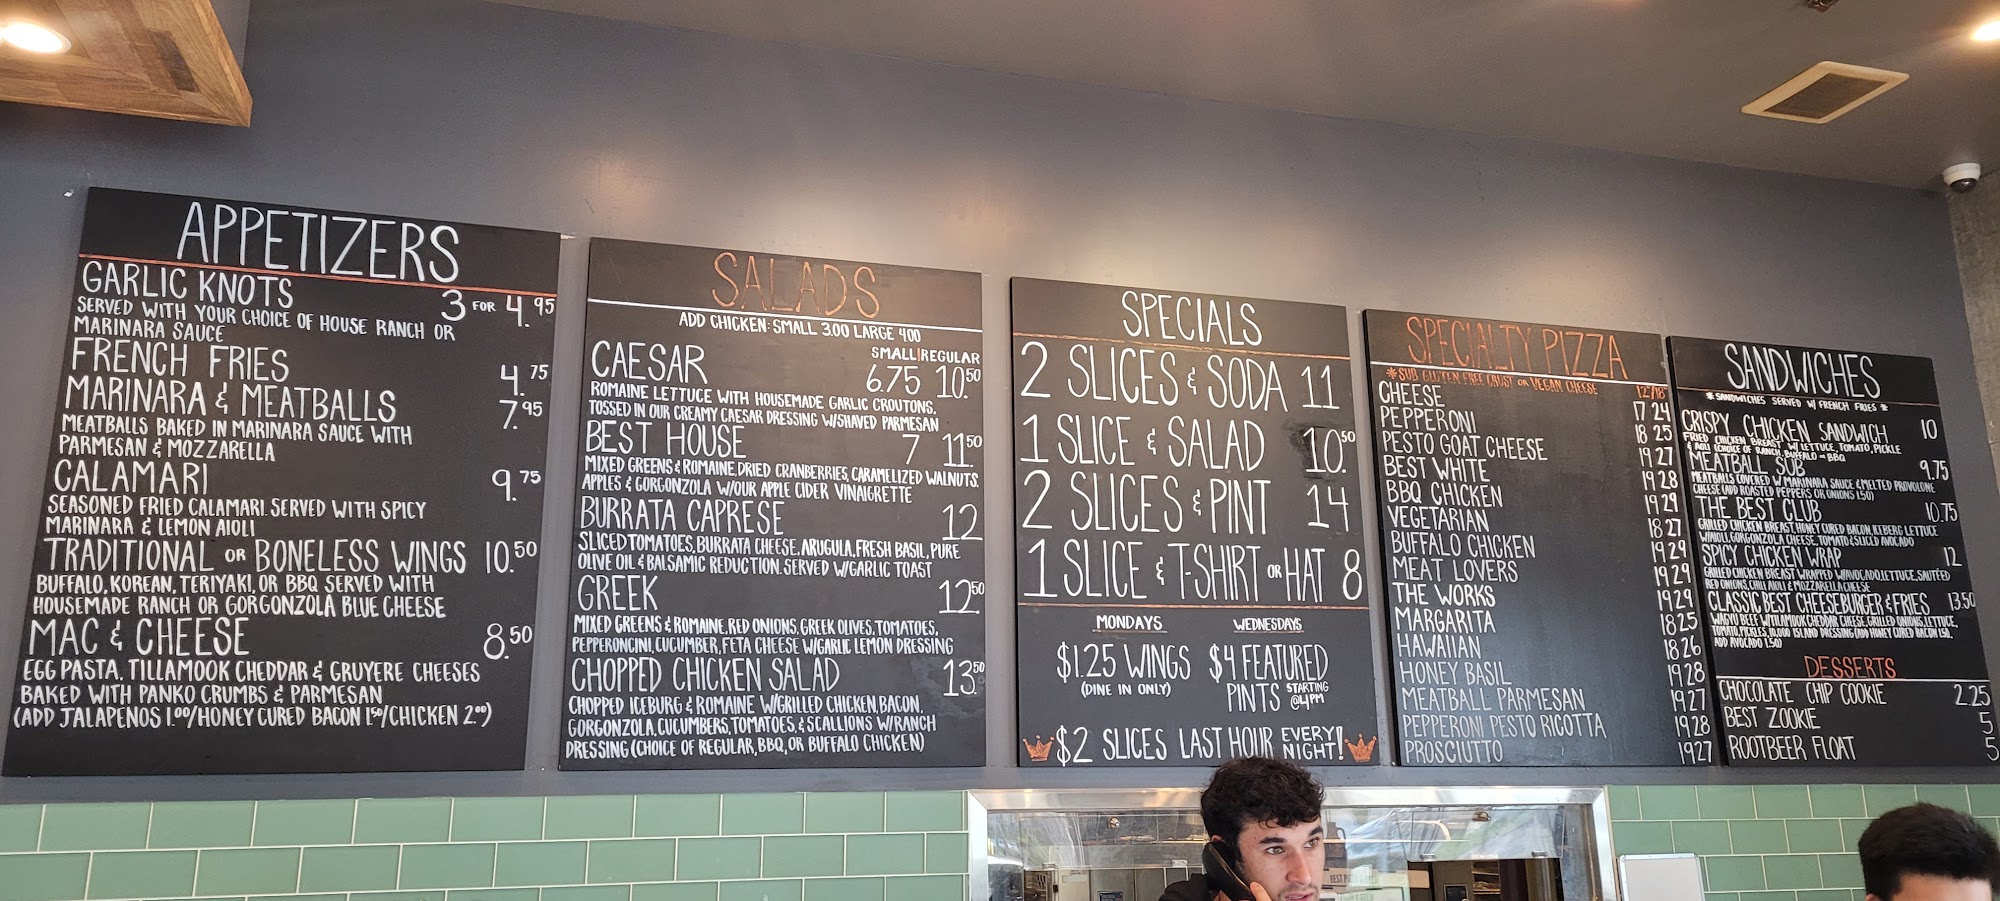 APPETIZERS
GARLIC KNOTS 3 FOR 4.95
SERVED WITH YOUR CHOICE OF HOUSE RANCH OR
MARINARA SAUCE
FRENCH FRIES 4.75
MARINARA & MEATBALLS 7.95
MEATBALLS BAKED IN MARINARA SAUCE WITH
PARMESAN & MOZZARELLA
CALAMARI 9.75
SEASONED FRIED CALAMARI. SERVED WITH SPICY
MARINARA & LEMON AIOLI
TRADITIONAL OR BONELESS WINGS 10.50
BUFFALO, KOREAN, TERIYAKI, OR BBQ SERVED WITH
HOUSEMADE RANCH OR GORGONZOLA BLUE CHEESE
MAC & CHEESE 8.50
EGG PASTA, TILLAMOOK CHEDDAR & GRUYERE CHEESES
BAKED WITH PANKO CRUMBS & PARMESAN
(ADD JALAPENOS 1.00/HONEY CURED BACON 1.50/CHICKEN 2.00)
SALADS
ADD CHICKEN: SMALL 3.00 LARGE 4.00
SMALL|REGULAR
CAESAR 6.75 10.50
ROMAINE LETTUCE WITH HOUSEMADE GARLIC CROUTONS,
TOSSED IN OUR CREAMY CAESAR DRESSING W/SHAVED PARMESAN
BEST HOUSE 7 11.50
MIXED GREENS & ROMAINE, DRIED CRANBERRIES, CARAMELIZED WALNUTS,
APPLES & GORGONZOLA W/OUR APPLE CIDER VINAIGRETTE
BURRATA CAPRESE 12
SLICED TOMATOES, BURRATA CHEESE, ARUGULA, FRESH BASIL, PURE
OLIVE OIL & BALSAMIC REDUCTION. SERVED W/GARLIC TOAST
GREEK 12.50
MIXED GREENS & ROMAINE, RED ONIONS, GREEK OLIVES, TOMATOES,
PEPPERONCINI, CUCUMBER, FETA CHEESE W/GARLIC LEMON DRESSING
CHOPPED CHICKEN SALAD 13.50
CHOPPED ICEBURG & ROMAINE W/GRILLED CHICKEN, BACON,
GORGONZOLA, CUCUMBERS, TOMATOES, & SCALLIONS W/RANCH
DRESSING (CHOICE OF REGULAR, BBQ, OR BUFFALO CHICKEN)
SPECIALS
2 SLICES & SODA 11
1 SLICE & SALAD 10.50
2 SLICES & PINT 14
1 SLICE & T-SHIRT OR HAT 8
MONDAYS
$1.25 WINGS
(DINE IN ONLY)
WEDNESDAYS
$4 FEATURED
PINTS STARTING @4PM
$2 SLICES LAST HOUR EVERY NIGHT!
SPECIALTY PIZZA
*SUB GLUTEN FREE CRUST OR VEGAN CHEESE 12"/18"
CHEESE 17 24
PEPPERONI 18 25
PESTO GOAT CHEESE 19 27
BEST WHITE 19 28
BBQ CHICKEN 19 29
VEGETARIAN 18 27
BUFFALO CHICKEN 19 29
MEAT LOVERS 19 29
THE WORKS 19 29
MARGARITA 18 25
HAWAIIAN 18 26
HONEY BASIL 19 28
MEATBALL PARMESAN 19 27
PEPPERONI PESTO RICOTTA 19 28
PROSCIUTTO 19 27
SANDWICHES
*SANDWICHES SERVED W/ FRENCH FRIES*
CRISPY CHICKEN SANDWICH 10
FRIED CHICKEN BREAST W/ LETTUCE, TOMATO, PICKLE
& AIOLI (CHOICE OF RANCH, BUFFALO OR BBQ
MEATBALL SUB 9.75
MEATBALLS COVERED W/ MARINARA SAUCE & MELTED PROVOLONE
CHEESE (ADD ROASTED PEPPERS OR ONIONS 1.50)
THE BEST CLUB 10.75
GRILLED CHICKEN BREAST, HONEY CURED BACON, ICEBERG LETTUCE
W/AIOLI, GORGONZOLA CHEESE, TOMATO & SLICED AVOCADO
SPICY CHICKEN WRAP 12
GRILLED CHICKEN BREAST WRAPPED W/AVOCADO, LETTUCE, SAUTÉED
RED ONIONS, CHILI AIOLI & MOZZARELLA CHEESE
CLASSIC BEST CHEESEBURGER & FRIES 13.50
WAGYU BEEF W/TILLAMOOK CHEDDAR CHEESE, GRILLED ONIONS, LETTUCE,
TOMATO, PICKLES, 10,000 ISLAND DRESSING (ADD HONEY CURED BACON 1.50,
ADD AVOCADO 1.50)
DESSERTS
CHOCOLATE CHIP COOKIE 2.25
BEST ZOOKIE 5
ROOTBEER FLOAT 5